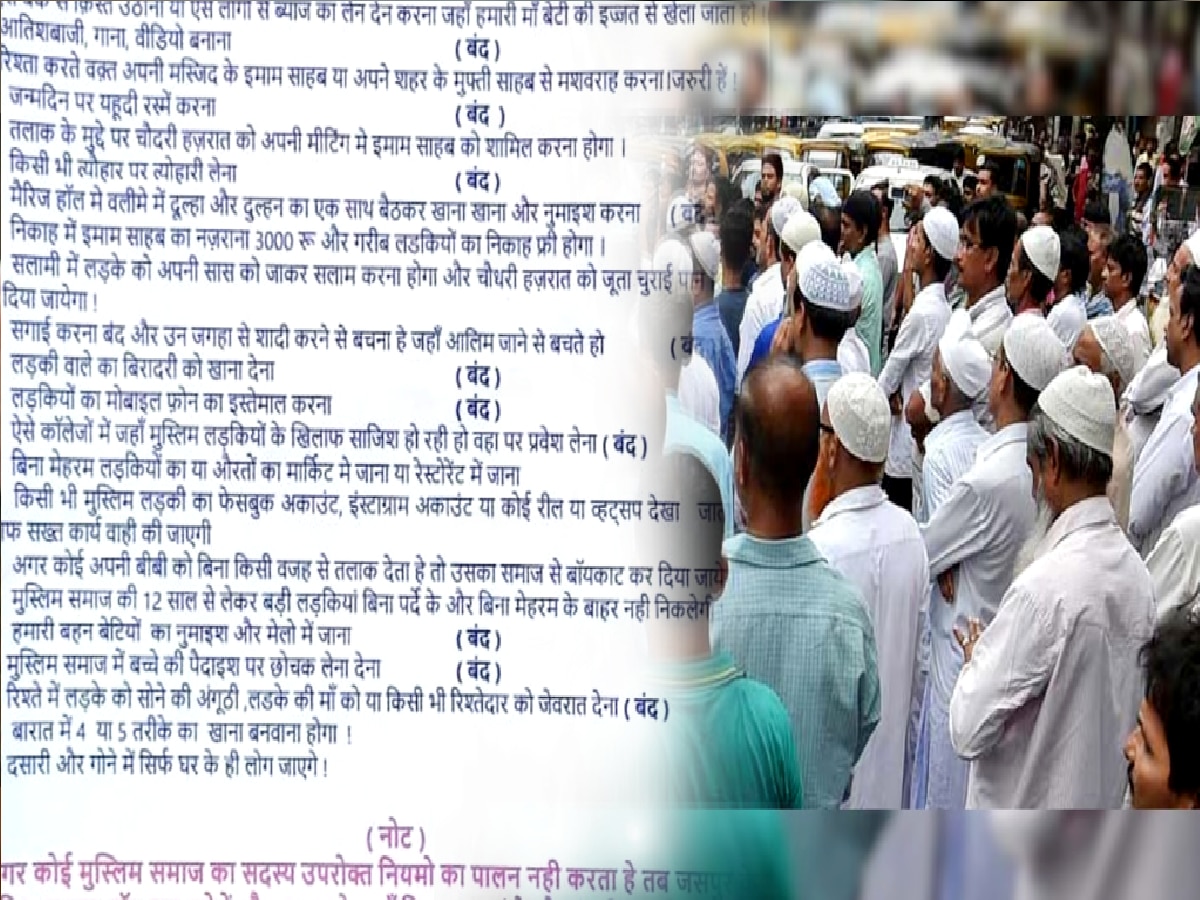 से क़िस्त उठाना या ऐसे लोगों से ब्याज का लेन देन करना जहाँ हमारी माँ बेटी की इज्जत से खेला जाता हो !
आतिशबाजी, गाना, वीडियो बनाना ( बंद )
रिश्ता करते वक़्त अपनी मस्जिद के इमाम साहब या अपने शहर के मुफ्ती साहब से मशवराह करना।जरुरी हें !
जन्मदिन पर यहूदी रस्में करना ( बंद )
तलाक के मुद्दे पर चौदरी हज़रात को अपनी मीटिंग मे इमाम साहब को शामिल करना होगा ।
किसी भी त्यौहार पर त्योहारी लेना ( बंद )
मैरिज हॉल मे वलीमे में दूल्हा और दुल्हन का एक साथ बैठकर खाना खाना और नुमाइश करना ( बंद
निकाह में इमाम साहब का नज़राना 3000 रू और गरीब लडकियों का निकाह फ्री होगा ।
सलामी में लड़के को अपनी सास को जाकर सलाम करना होगा और चौधरी हज़रात को जूता चुराई
दिया जायेगा !
सगाई करना बंद और उन जगहा से शादी करने से बचना हे जहाँ आलिम जाने से बचते हो ( बं
लड़की वाले का बिरादरी को खाना देना ( बंद )
लड़कियों का मोबाइल फ़ोन का इस्तेमाल करना ( बंद )
ऐसे कॉलेजों में जहाँ मुस्लिम लड़कियों के खिलाफ साजिश हो रही हो वहा पर प्रवेश लेना ( बंद )
बिना मेहरम लड़कियों का या औरतों का मार्किट मे जाना या रेस्टोरेंट में जाना
किसी भी मुस्लिम लड़की का फेसबुक अकाउंट, इंस्टाग्राम अकाउंट या कोई रील या व्हटसप देखा
फ सख्त कार्य वाही की जाएगी
अगर कोई अपनी बीबी को बिना किसी वजह से तलाक देता हे तो उसका समाज से बॉयकाट कर दिया जाये
मुस्लिम समाज की 12 साल से लेकर बड़ी लड़कियां बिना पर्दे के और बिना मेहरम के बाहर नही निकलेगी
हमारी बहन बेटियों का नुमाइश और मेलो में जाना ( बंद )
मुस्लिम समाज में बच्चे की पैदाइश पर छोचक लेना देना ( बंद )
रिश्ते में लड़के को सोने की अंगूठी ,लडके की माँ को या किसी भी रिश्तेदार को जेवरात देना ( बंद )
बारात में 4 या 5 तरीके का खाना बनवाना होगा !
दसारी और गोने में सिर्फ घर के ही लोग जाएगे !
( नोट )
गर कोई मुस्लिम समाज का सदस्य उपरोक्त नियमो का पालन नही करता हे तब जसपु